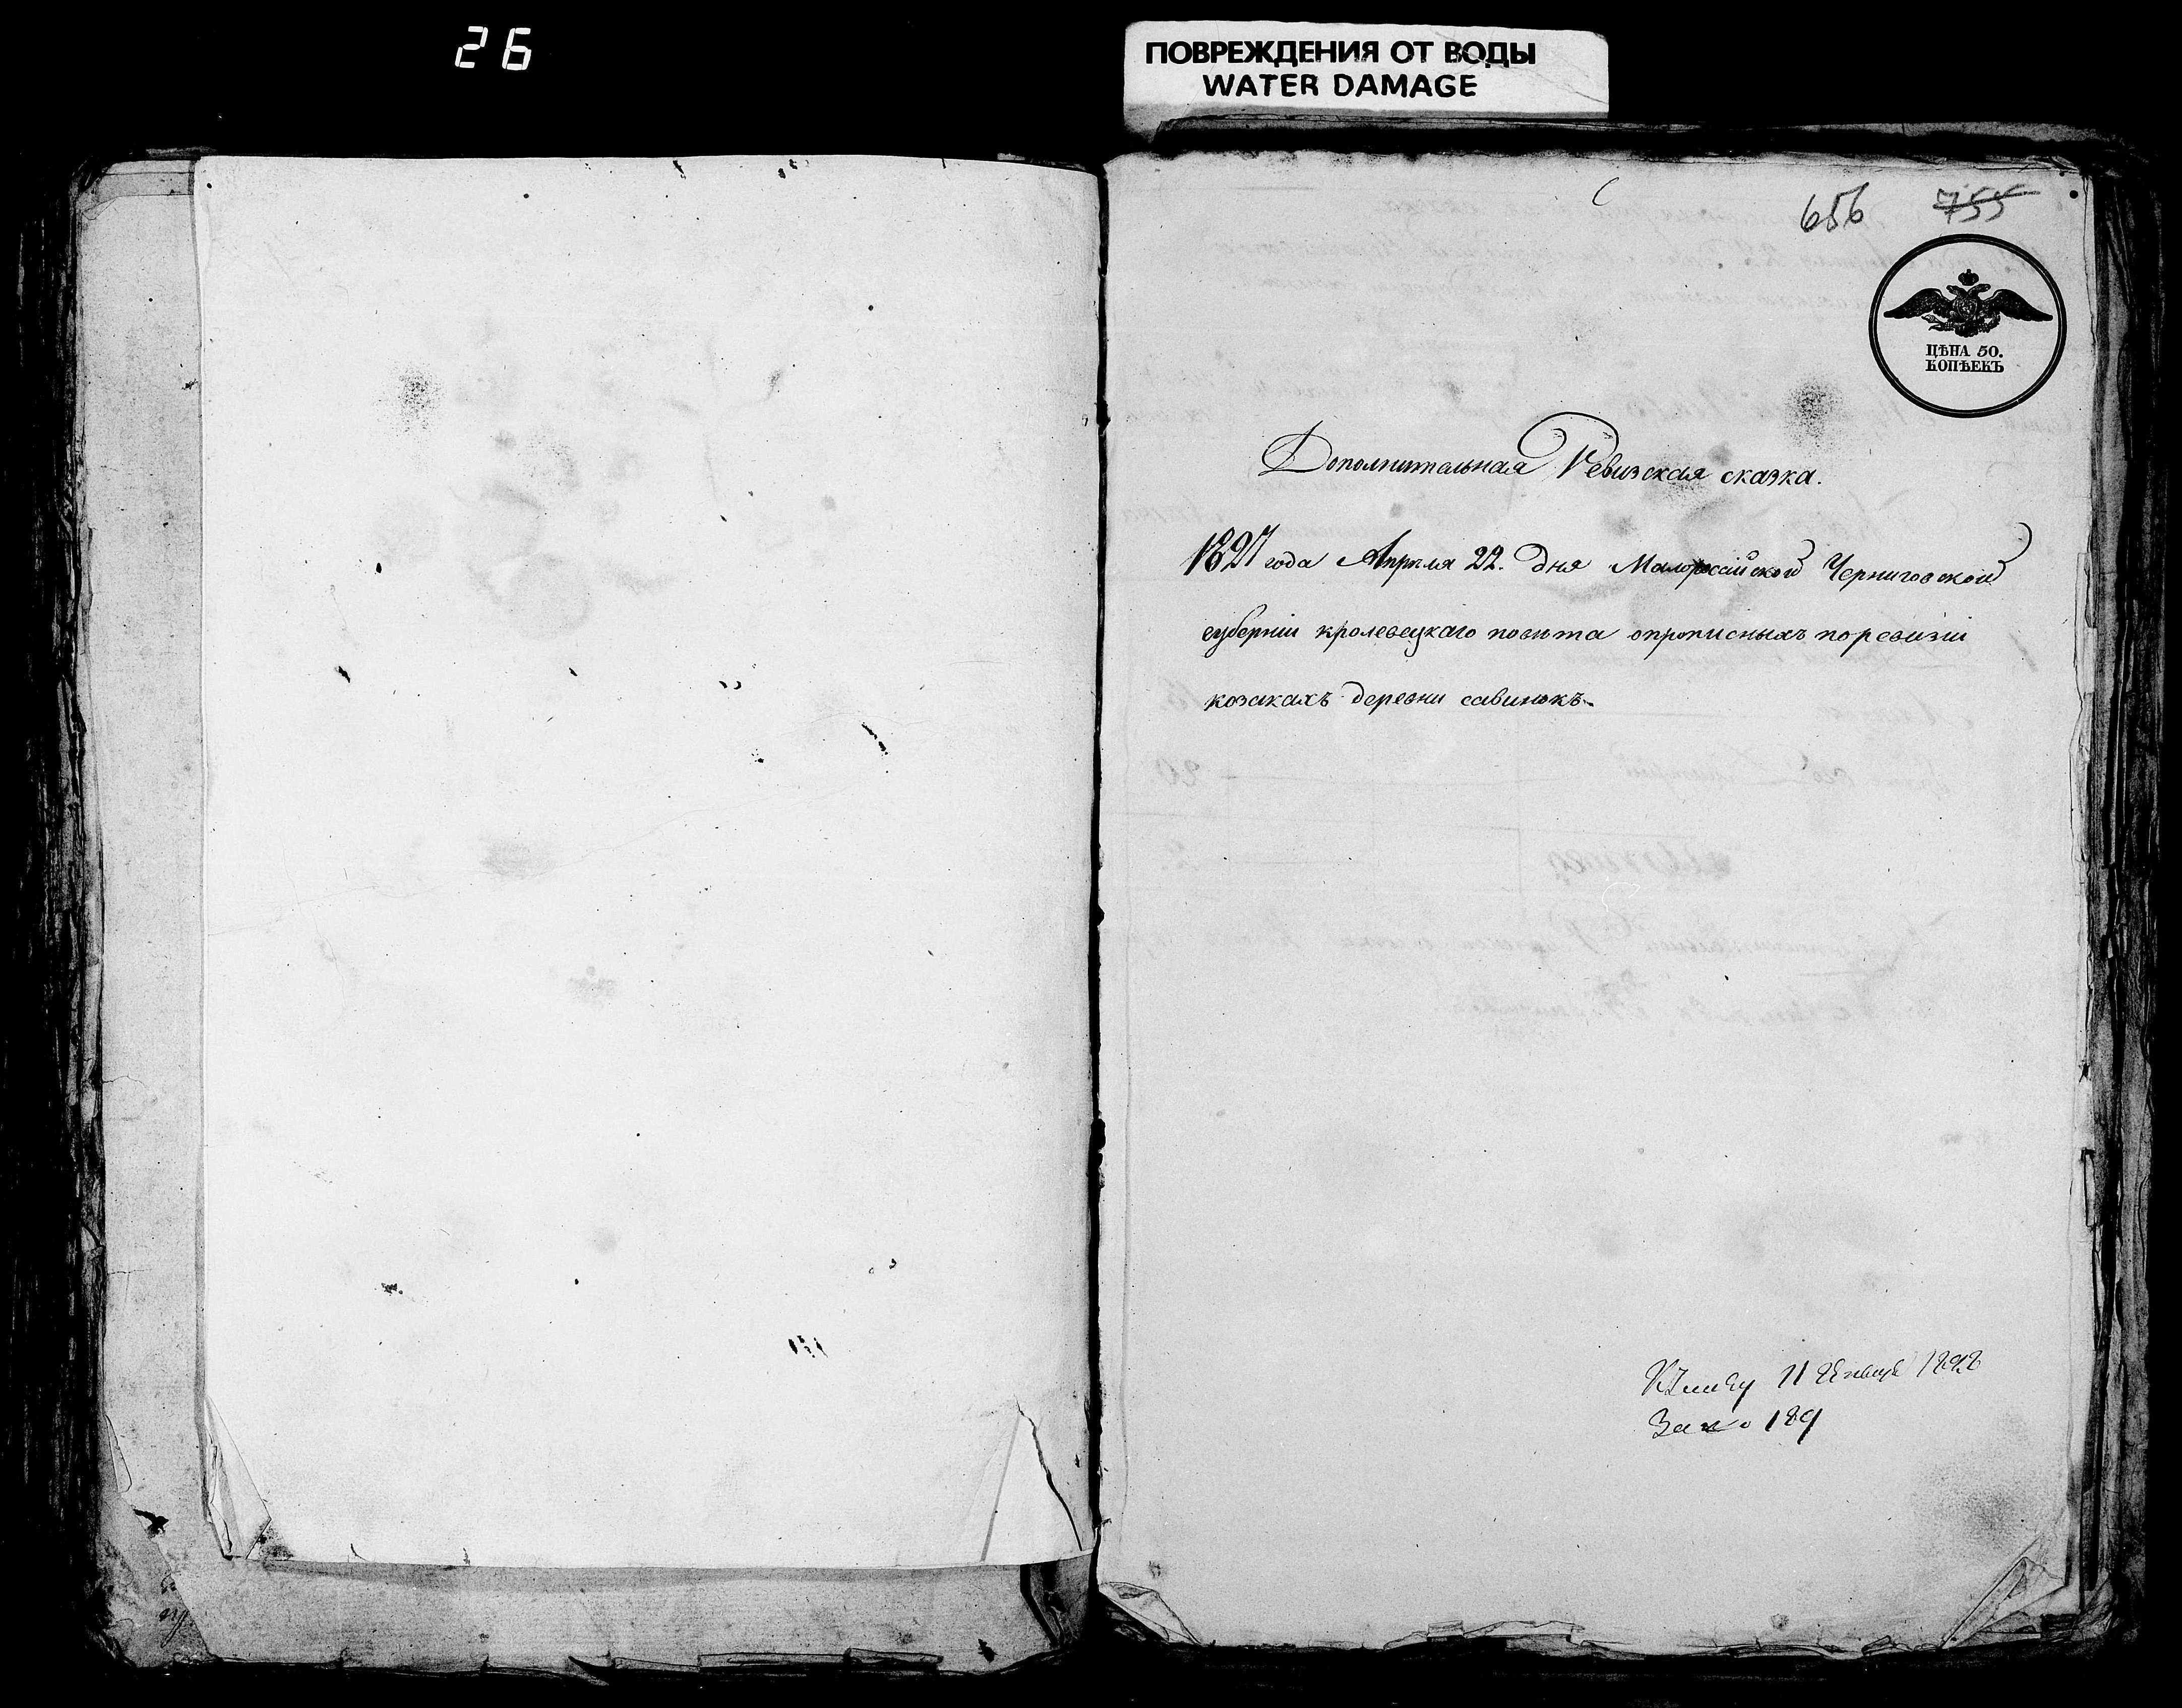 26
ПОВРЕЖДЕНИЯ ОТ ВОДЫ
WATER DAMAGE
656 755
ЦѢНА 50.
КОПѢЕКЪ
Дополнительная Ревизская сказка.
1827 года Апреля 22. дня Малороссійской Черниговской
губерніи кролевецкаго повѣта опрописныхъ поревизіи
козакахъ деревни савинокъ.
11 1828
189